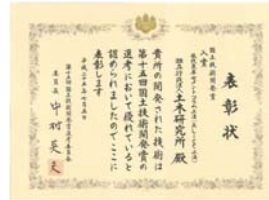 表彰状
国土技術開発賞
入賞
独立行政法人土木研究所 殿
貴所の開発された技術は
第十五回国土技術開発賞の
選考において優れていると
認められましたのでここに
表彰します
平成二十五年七月
第十五回国土技術開発賞選考委員会
委員長 中村英夫